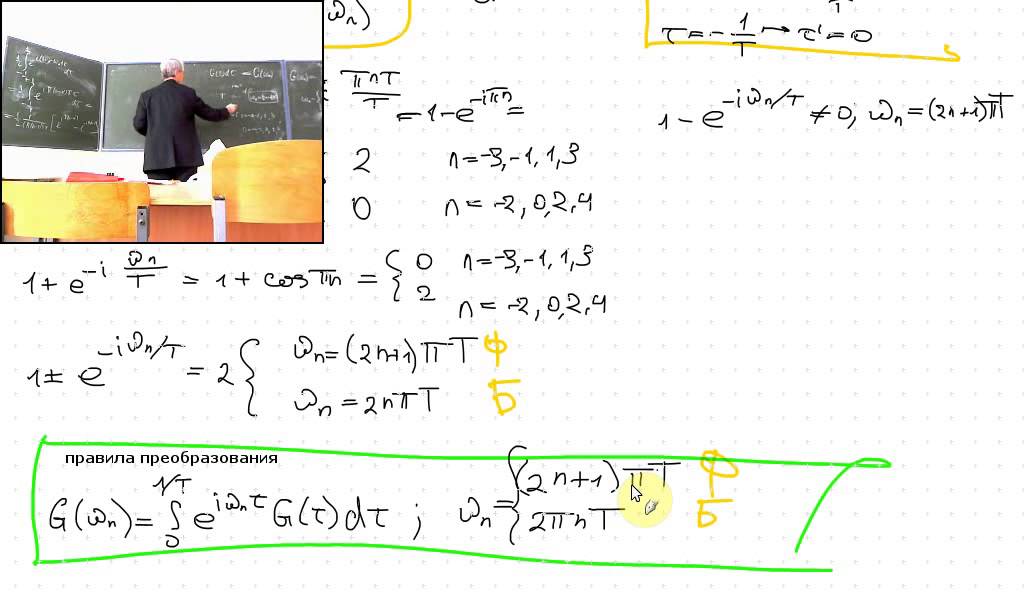 ωₙ)
τ = -1/T ↦ τ' = 0
πnT/T = 1 - e^{-iπn} =
2 n = -3, -1, 1, 3
0 n = -2, 0, 2, 4
1 - e^{-iωₙ/T} ≠ 0, ωₙ = (2n+1)πT
1 + e^{-i ωₙ/T} = 1 + cos πn = { 0 n = -3, -1, 1, 3
2 n = -2, 0, 2, 4
1 ± e^{-iωₙ/T} = 2 { ωₙ = (2n+1)πT Ф
ωₙ = 2nπT Б
правила преобразования
G(ωₙ) = ∫₀^{1/T} e^{iωₙτ} G(τ) dτ ; ωₙ = { (2n+1)πT Ф
2πnT Б